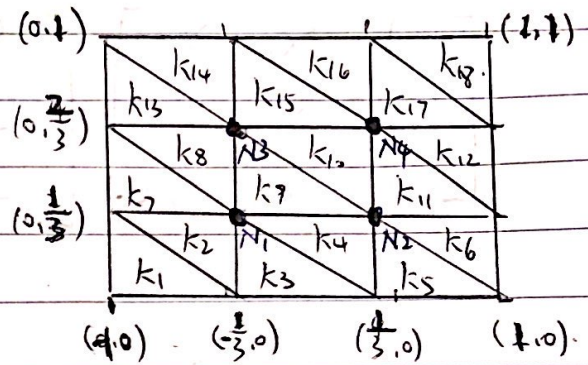 (0,1) (1,1)
K14 K16 K18
K13 K15 K17
(0,2/3)
K8 N3 K10 N4 K12
K7 K9 K11
(0,1/3)
K2 N1 K4 N2 K6
K1 K3 K5
(-1,0) (-1/3,0) (1/3,0) (1,0).